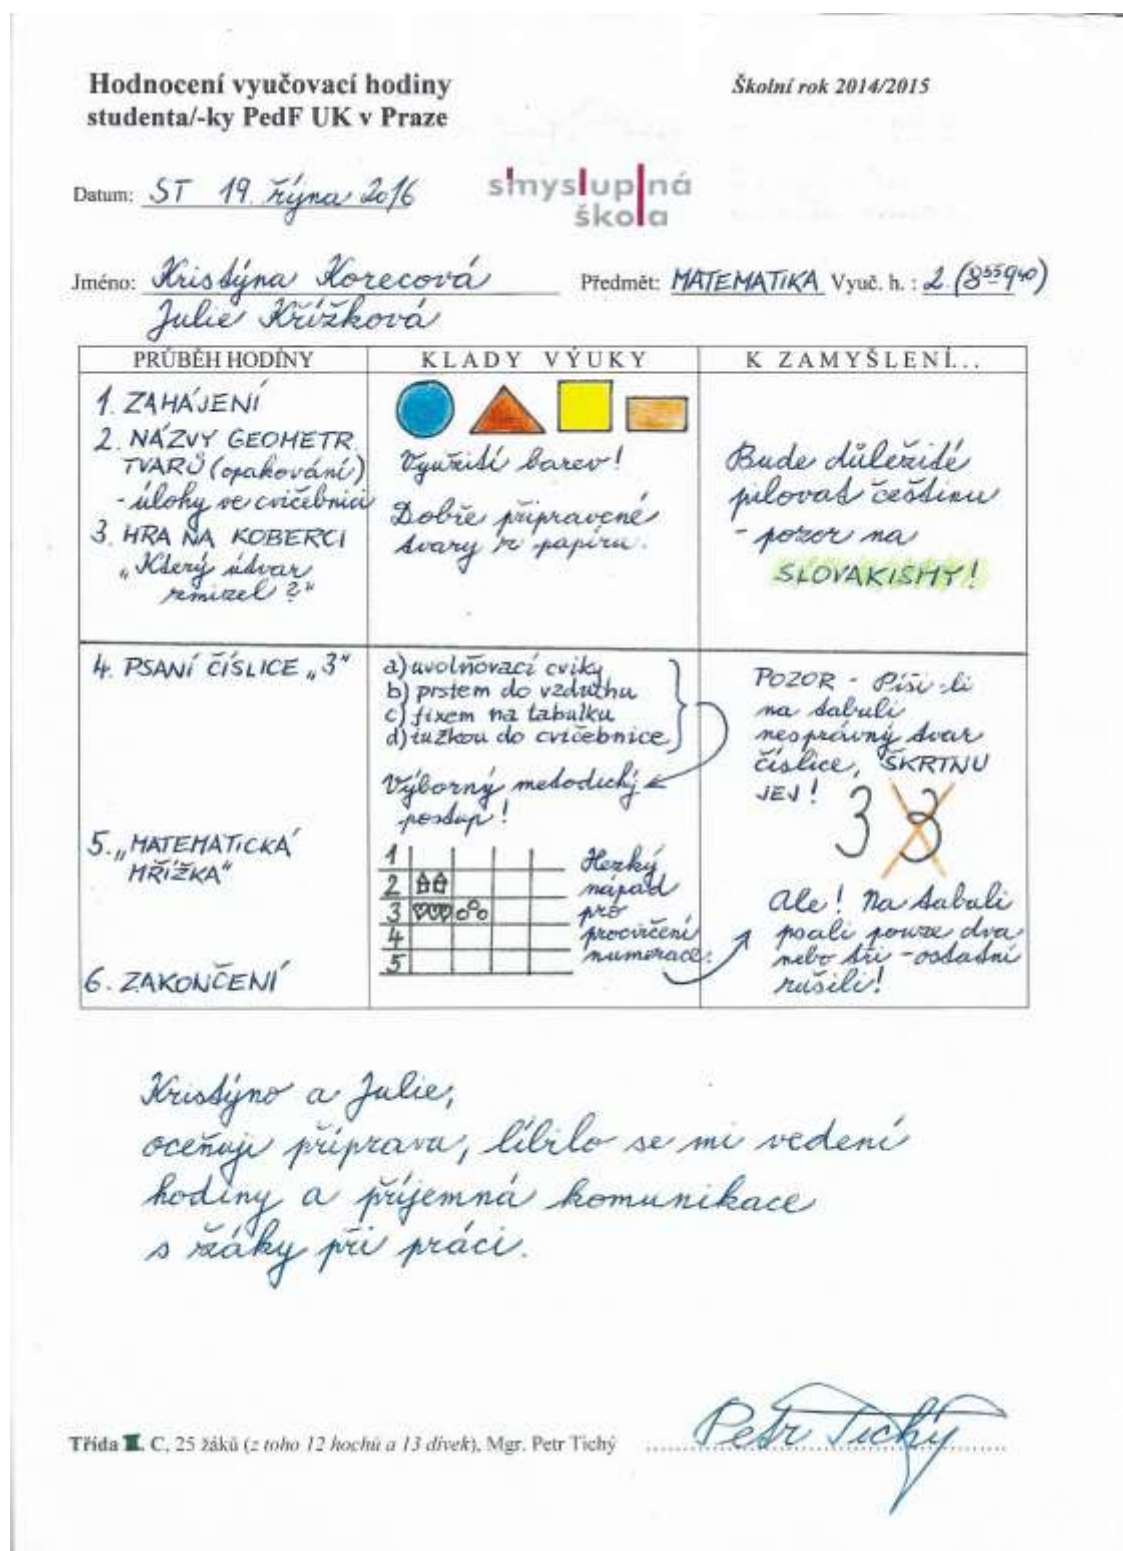 Hodnocení vyučovací hodiny
studenta/-ky PedF UK v Praze
Školní rok 2014/2015
smysluplná
škola
Datum: ST 19. října 2016
Jméno: Kristýna Korecová
Julie Křížková
Předmět: MATEMATIKA Vyuč. h. : 2. (8⁵⁵-9⁴⁰)
PRŮBĚH HODINY
1. ZAHÁJENÍ
2. NÁZVY GEOMETR.
TVARŮ (opakování)
- úlohy ve cvičebnici
3. HRA NA KOBERCI
„Který útvar
zmizel?“
KLADY VÝUKY
Využití barev!
Dobře připravené
tvary z papíru.
K ZAMYŠLENÍ...
Bude důležité
pilovat češtinu
- pozor na
SLOVAKISMY!
4. PSANÍ ČÍSLICE „3“
5. „MATEMATICKÁ
MŘÍŽKA“
6. ZAKONČENÍ
a) uvolňovací cviky
b) prstem do vzduchu
c) fixem na tabulku
d) tužkou do cvičebnice
Výborný metodický
postup!
1
2
3
4
5
Hezký
nápad
pro
procvičení
numerace.
POZOR - Píši-li
na tabuli
nesprávný tvar
číslice, ŠKRTNU
JEJ!
3 3
Ale! Na tabuli
psali pouze dva
nebo tři - ostatní
rušili!
Kristýno a Julie,
oceňuji přípravu, líbilo se mi vedení
hodiny a příjemná komunikace
s žáky při práci.
Třída I. C, 25 žáků (z toho 12 hochů a 13 dívek), Mgr. Petr Tichý
Petr Tichý